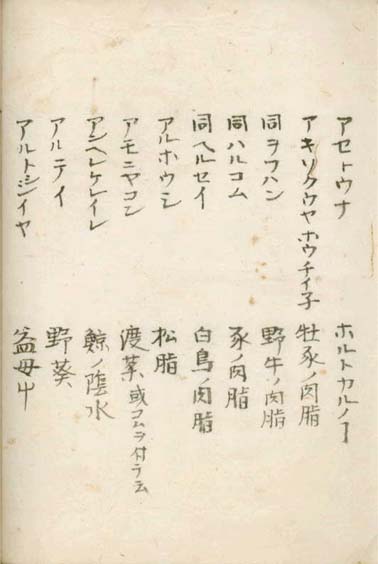 アセトウナ ホルトカルノヿ
アキソクウヤホウチイ子 牡豕ノ肉脂
同ヲフハン 野牛ノ肉脂
同ハルコム 豕ノ肉脂
同ヘルセイ 白鳥ノ肉脂
アルホウシ 松脂
アモニヤコン 渡葉或コムヲ付ラ云
アンヘレケレイレ 鯨ノ陰水
アルテイ 野葵
アルトシイヤ 益母屮